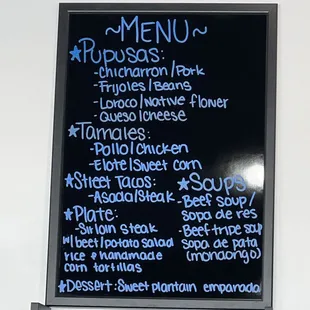 ~MENU~
★Pupusas:
-Chicharron/Pork
-Frijoles/Beans
-Loroco/Native flower
-Queso/Cheese
★Tamales:
-Pollo/Chicken
-Elote/Sweet corn
★Street Tacos:
-Asada/Steak
★Plate:
-Sirloin steak
w/ beet/potato salad
rice & handmade
corn tortillas
★Soups
-Beef soup/
sopa de res
-Beef tripe soup
sopa de pata
(mondongo)
★Dessert: Sweet plantain empanada